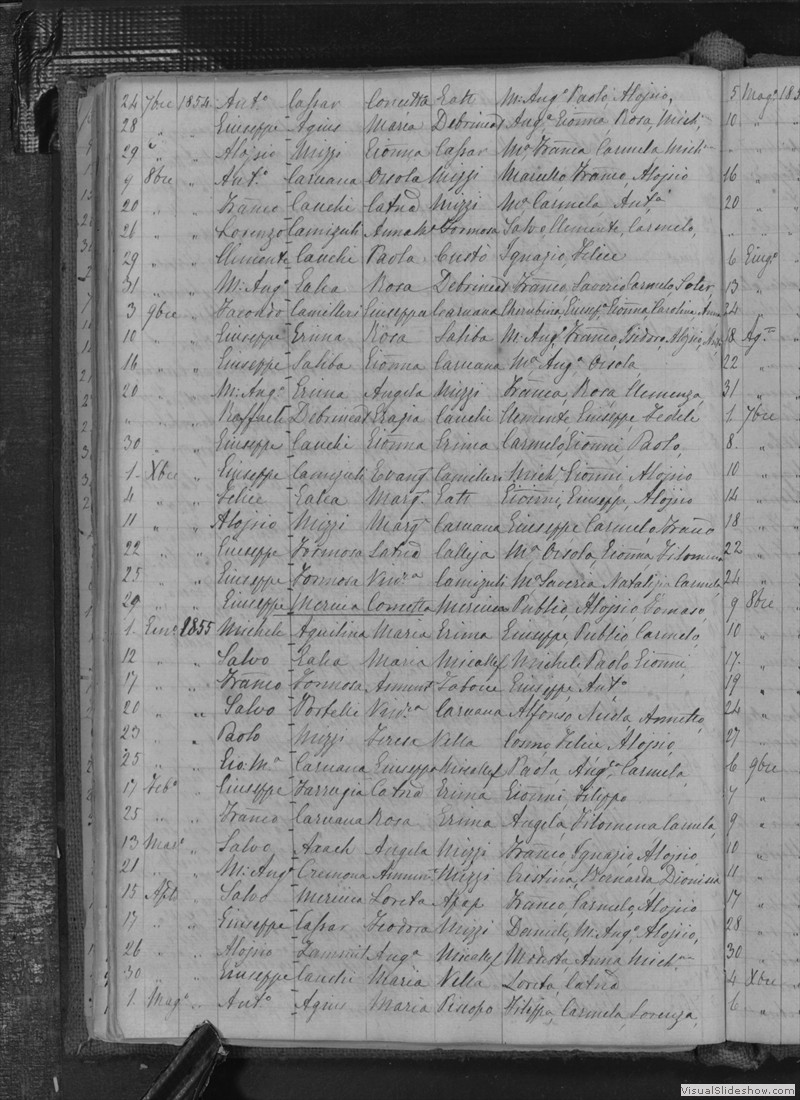 24 7bre 1854 Ant.o Cassar Concetta Eatt M: Ang.o Paolo, Alojsio,
28 „ „ Giuseppe Agius Maria Debrincat Ang.a Gionna, Rosa, Mich:
29 „ „ Alojsio Mizzi Gionna Cassar M.a Franca Carmela Mich
9 8bre „ Ant.o Caruana Orsola Mizzi Franco, Alojsio
20 „ „ Franco Cauchi Catna Mizzi M.a Carmela Ant.a
26 „ „ Lorenzo Camizuli Formosa Salvo, Clemente, Carmelo,
29 „ „ Clemente Cauchi Paola Custo Ignazio, Felice
31 „ „ M: Ang.o Galia Rosa Debrincat Franco Saverio Carmelo
3 9bre „ Camilleri Giuseppa Caruana Cherubina, Gionna, Carolina, Anna
10 „ „ Giuseppe Erima Rosa Saliba M: Ang.o Franco, Isidoro, Alojsio,
16 „ „ Giuseppe Saliba Gionna Caruana M.a Ang.a Orsola,
20 „ „ M: Ang.o Erima Angela Mizzi Franca, Rosa Clemenza,
„ „ „ Raffaele Debrincat Grazia Cauchi Clemente Giuseppe Fedele
30 „ „ Giuseppe Cauchi Gionna Erima Carmelo, Gionni, Paolo,
1 Xbre „ Giuseppe Camizuli Evang. Camilleri Mich: Gionni, Alojsio
4 „ „ Felice Galia Marg. Eatt Gionni, Giuseppe, Alojsio
11 „ „ Alojsio Mizzi Marg. Caruana Giuseppe Carmelo, Franco
22 „ „ Giuseppe Formosa Calleja M.a Orsola, Gionna, Filomena
25 „ „ Giuseppe Formosa Vin.a Camizuli M.a Saveria Natalizia Carmela
29 „ „ Giuseppe Mercieca Concetta Mercieca Publio, Alojsio Tomaso,
1 Gen.o 1855 Michele Aquilina Maria Erima Giuseppe Publio Carmelo,
12 „ „ Salvo Galia Maria Micallef Michele Paolo Gionni,
17 „ „ Franco Formosa Assunt. Tabone Giuseppe, Ant.o
20 „ „ Salvo Portelli Vin.a Caruana Alfonso Annetto,
23 „ „ Paolo Mizzi Terese Vella Cosmo Felice Alojsio,
25 „ „ Gio: M.a Caruana Giuseppa Micallef Paola Ang.a Carmela,
17 Feb.o „ Giuseppe Farrugia Catna Erima Gionni, Filippo
25 „ „ Franco Caruana Rosa Erima Angela Filomena Carmela,
13 Mar.o „ Salvo Axach Angela Mizzi Franco Ignazio Alojsio,
21 „ „ M: Ang.o Cremona Assunt. Mizzi Cristina, Bernarda Dionisia
15 Aple „ Salvo Mercieca Loreta Apap Franco, Carmelo, Alojsio
17 „ „ Giuseppe Cassar Teodora Mizzi Daniele, M: Ang.o Alojsio,
26 „ „ Alojsio Zammit Ang.a Micallef Modesta, Anna Mich
30 „ „ Giuseppe Cauchi Maria Vella Loreta, Catna
1 Mag.o „ Ant.o Agius Maria Piscopo Filippa, Carmela, Lorenza,
5 Mag.o 185
10 „
„ „
16 „
20 „
„ „
6 Giug.o
13 „
24 „
18 Ag.
22 „
31 „
1 7bre
8 „
10 „
14 „
18 „
22 „
24 „
9 8bre
10 „
17 „
19 „
24 „
27 „
6 9bre
7 „
9 „
10 „
11 „
17 „
28 „
30 „
4 Xbre
6 „
VisualSlideshow.com